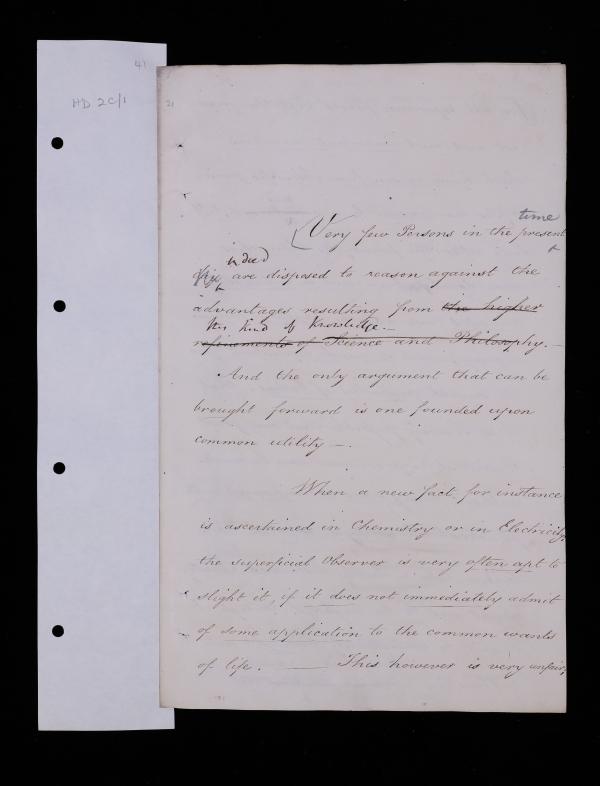 41
HD 2C/1
21
time
Very few Persons in the present
indeed
day are disposed to reason against the
advantages resulting from the higher
this kind of Knowledge.—
refinements of Science and Philosophy.—
And the only argument that can be
brought forward is one founded upon
common utility —.
When a new fact for instance
is ascertained in Chemistry or in Electricity,
the superficial Observer is very often apt to
slight it, if it does not immediately admit
of some application to the common wants
of life. — This however is very unfair;